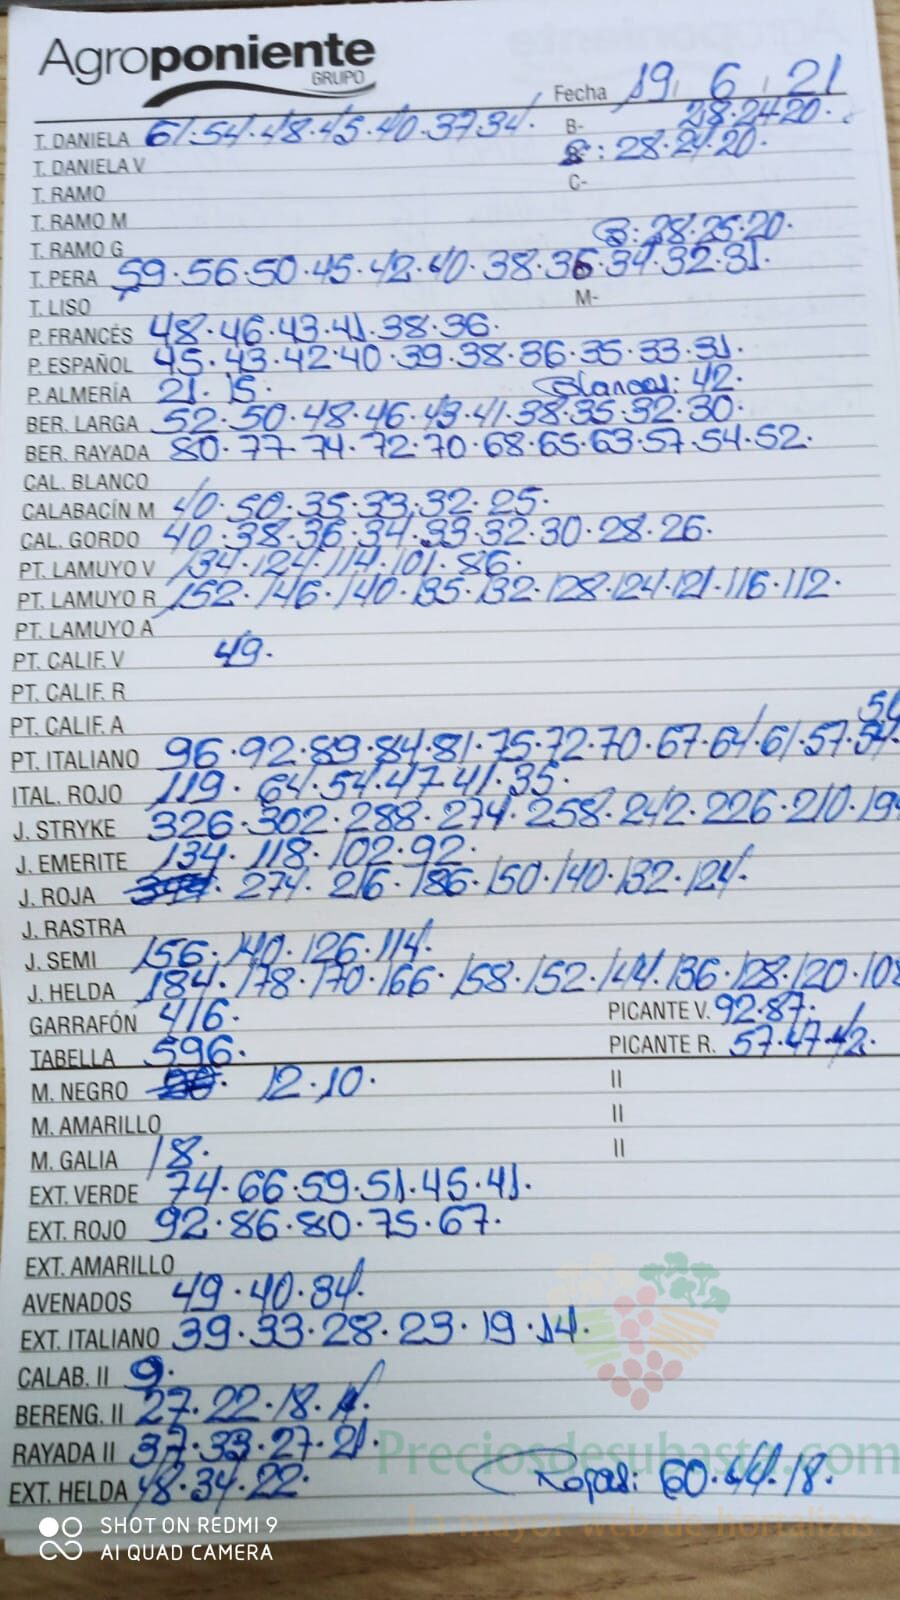 Agroponiente
GRUPO
Fecha 19 6 21
T. DANIELA 61.54.48.45.40.37.34. B- 28.24.20.
T. DANIELA V : 28.24.20.
T. RAMO C-
T. RAMO M
T. RAMO G B: 28.25.20.
T. PERA 59.56.50.45.42.40.38.36.34.32.31.
T. LISO M-
P. FRANCÉS 48.46.43.41.38.36.
P. ESPAÑOL 45.43.42.40.39.38.36.35.33.31.
P. ALMERÍA 21.15. Blancas: 42.
BER. LARGA 52.50.48.46.43.41.38.35.32.30.
BER. RAYADA 80.77.74.72.70.68.65.63.57.54.52.
CAL. BLANCO
CALABACÍN M 40.50.35.33.32.25.
CAL. GORDO 40.38.36.34.33.32.30.28.26.
PT. LAMUYO V 134.124.114.101.86.
PT. LAMUYO R 152.146.140.135.132.128.124.121.116.112.
PT. LAMUYO A
PT. CALIF. V 49.
PT. CALIF. R
PT. CALIF. A
PT. ITALIANO 96.92.89.84.81.75.72.70.67.64.61.57.54.
ITAL. ROJO 119. 64.54.47.41.35.
J. STRYKE 326.302.288.274.258.242.226.210.194
J. EMERITE 134.118.102.92.
J. ROJA 274.216.186.150.140.132.124.
J. RASTRA
J. SEMI 156.140.126.114.
J. HELDA 184.178.170.166.158.152.144.136.128.120.108
GARRAFÓN 416. PICANTE V. 92.87.
TABELLA 596. PICANTE R. 57.47.42.
M. NEGRO 12.10. II
M. AMARILLO II
M. GALIA 18. II
EXT. VERDE 74.66.59.51.45.41.
EXT. ROJO 92.86.80.75.67.
EXT. AMARILLO
AVENADOS 49.40.34.
EXT. ITALIANO 39.33.28.23.19.14.
CALAB. II 9.
BERENG. II 27.22.18.
RAYADA II 37.33.27.21.
Preciosdesubasta.com
EXT. HELDA 48.34.22. Rojas: 60.44.18.
La mayor web de hortalizas
SHOT ON REDMI 9
AI QUAD CAMERA